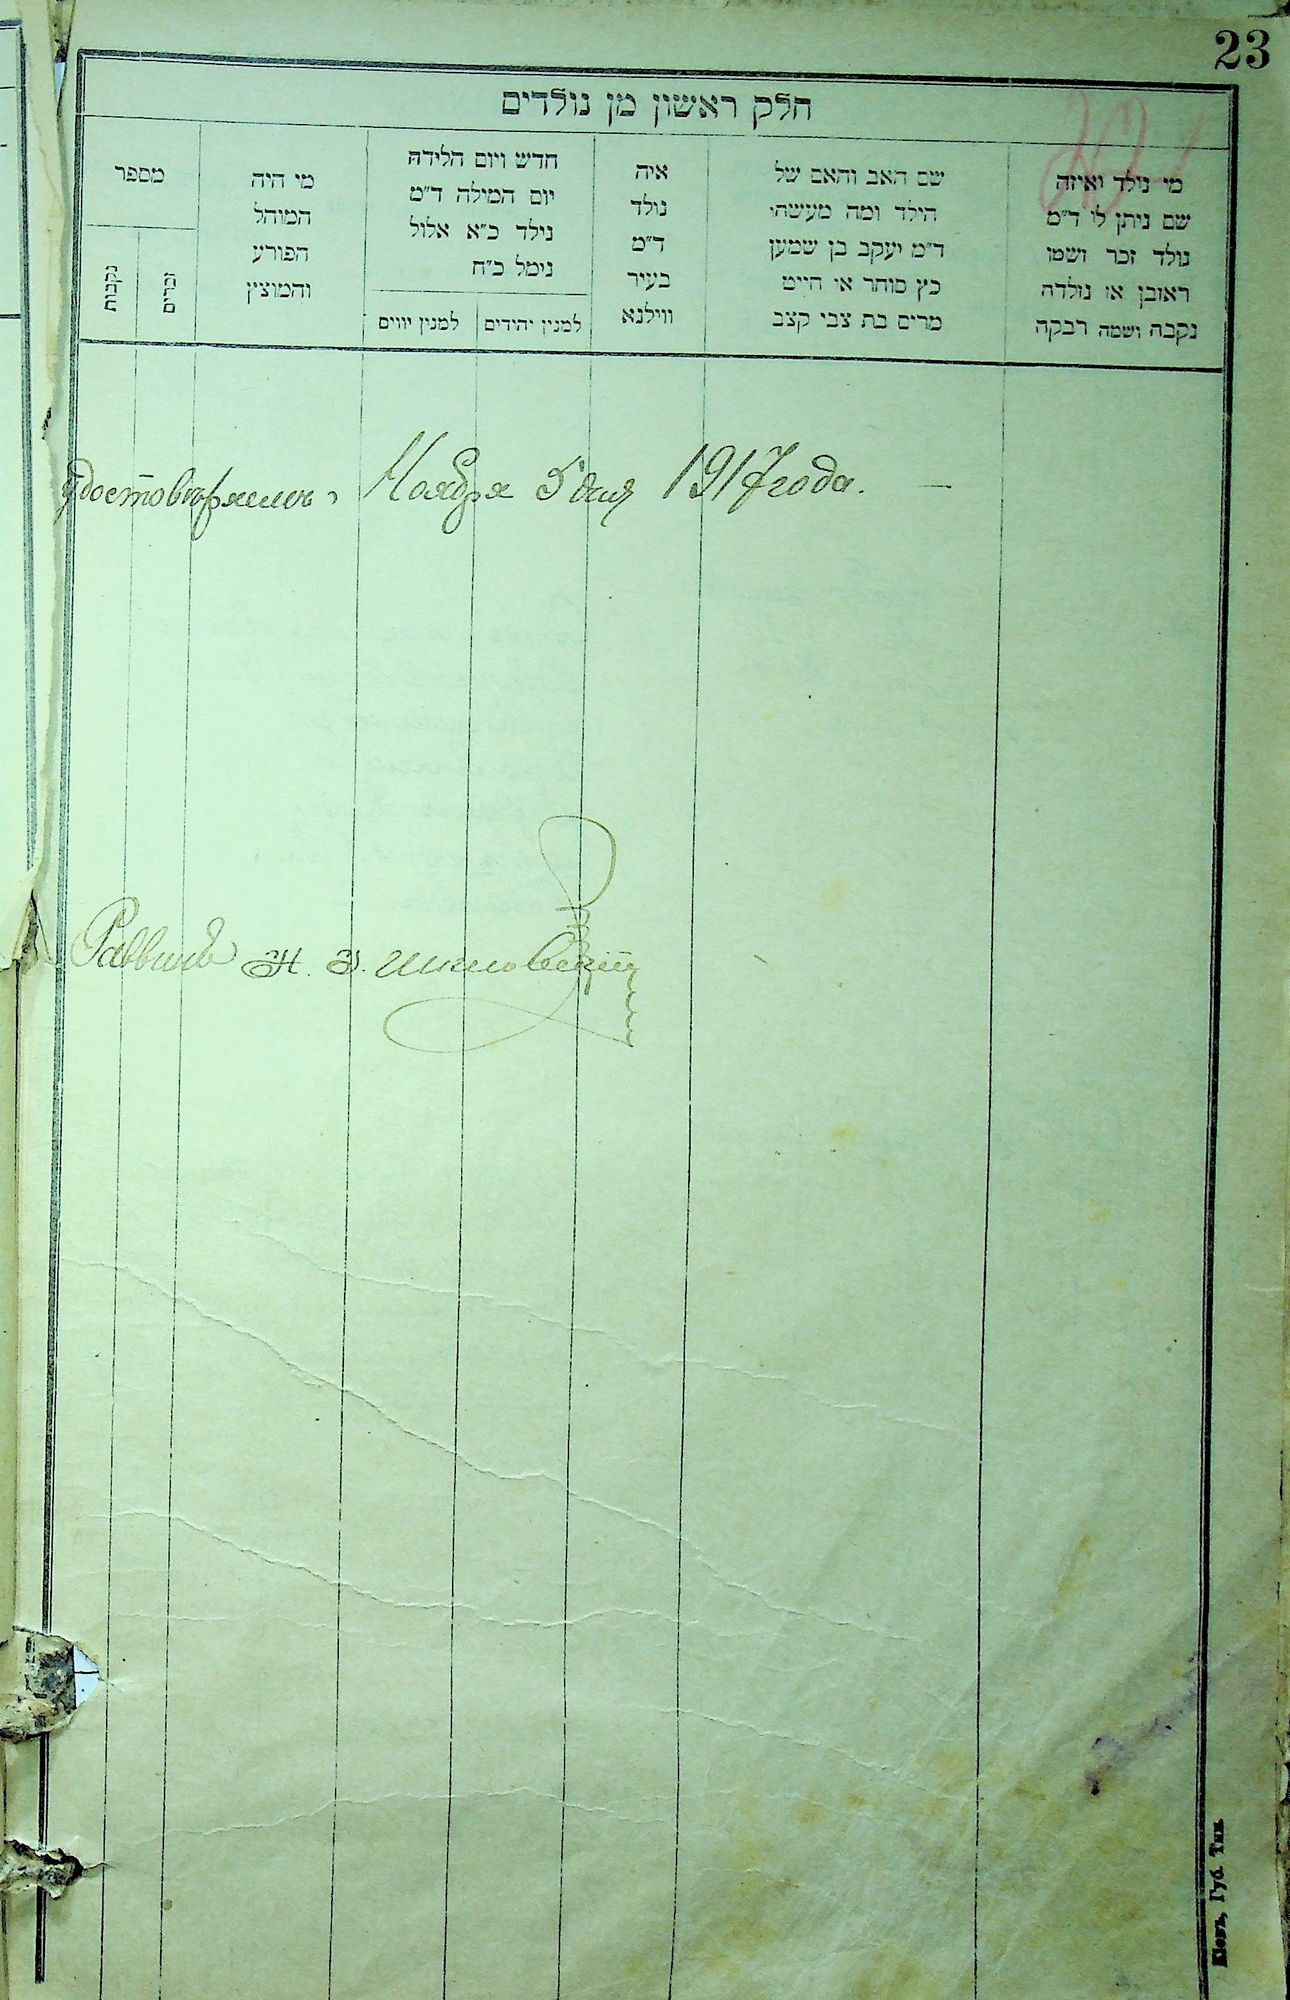 23
חלק ראשון מן נולדים
מי נולד ואיזה
שם ניתן לו ד״מ
נולד זכר ושמו
ראובן או נולדה
נקבה ושמה רבקה
שם האב והאם של
הילד ומה מעשהו
ד״מ יעקב בן שמעון
כץ סוחר או חייט
מרים בת צבי קצב
איה
נולד
ד״מ
בעיר
ווילנא
חדש ויום הלידה
יום המילה ד״מ
נילד כ״א אלול
נימל כ״ח
למנין יהודים
למנין יוונים
מי היה
המוהל
הפורע
והמוצץ
מספר
זכרים
נקבות
удостовѣряемъ, Ноября 5 дня 1917 года. —
Раввинъ
Кіевъ, Губ. Тип.